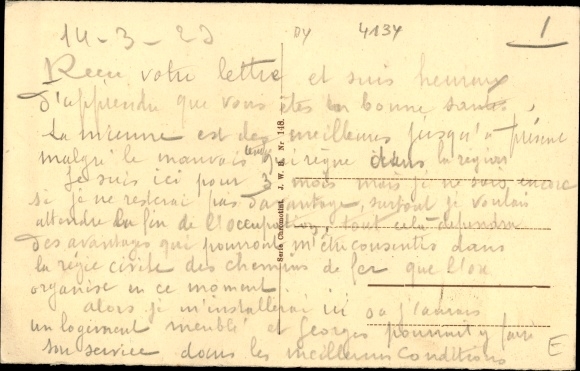 14-3-23
DY
4134
1
Reçu votre lettre et suis heureux
d'apprendre que vous êtes en bonne santé,
La mienne est des meilleures jusqu'à présent
malgré le mauvais temps qui règne dans la région
Je suis ici pour 3 mois mais je ne sais encore
si je ne resterai pas davantage, surtout je voulais
attendre la fin de l'occupation, tout cela dépendra
des avantages qui pourront m'être consentis dans
la régie civile des chemins de fer que l'on
organise en ce moment
alors je m'installerai ici où j'aurais
un logement meublé et Georges pourrait y faire
son service dans les meilleures conditions
E
Serie Chromotint. J. W. B. Nr 148.